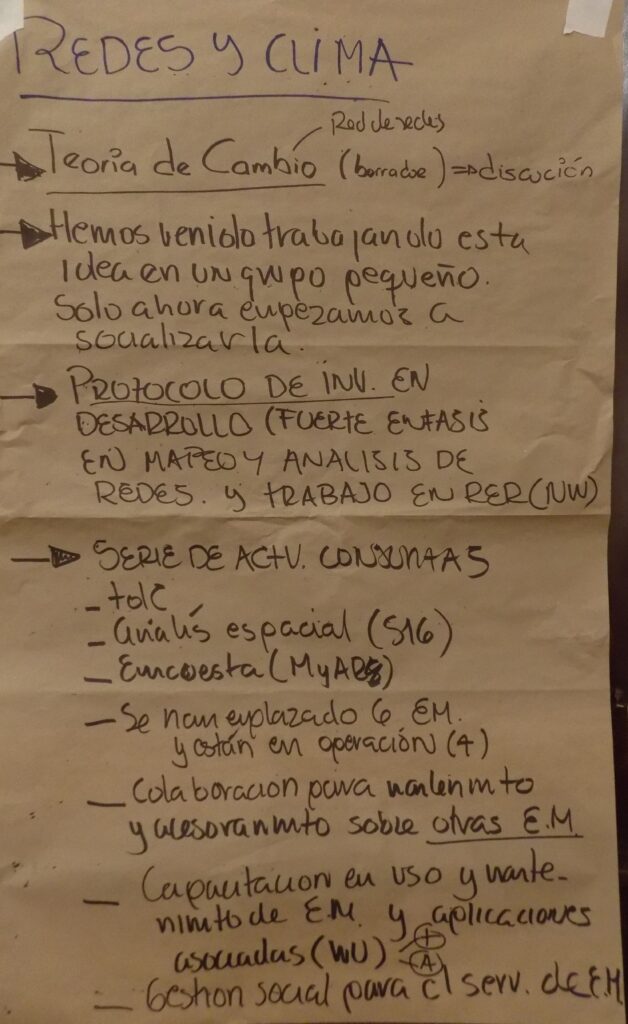 REDES Y CLIMA
Red de redes
Teoria de Cambio (borrador) ⇒ discución
Hemos venido trabajando esta
idea en un grupo pequeño.
Solo ahora empezamos a
socializarla.
PROTOCOLO DE INV. EN
DESARROLLO (FUERTE ENFASIS
EN MAPEO Y ANALISIS DE
REDES. y TRABAJO EN RER (NW)
SERIE DE ACTV. CONJUNTAS
- tolC
- Análís espacial (S16)
- Encuesta (MyARs)
- Se han emplazado 6 EM.
y están en operación (4)
- Colaboracion para mantenimto
y asesoramnto sobre otras E.M.
- Capacitacion en uso y mante-
nimto de E.M. y aplicaciones
asociadas (WU) + A
- Gestion social para el serv. de E.M